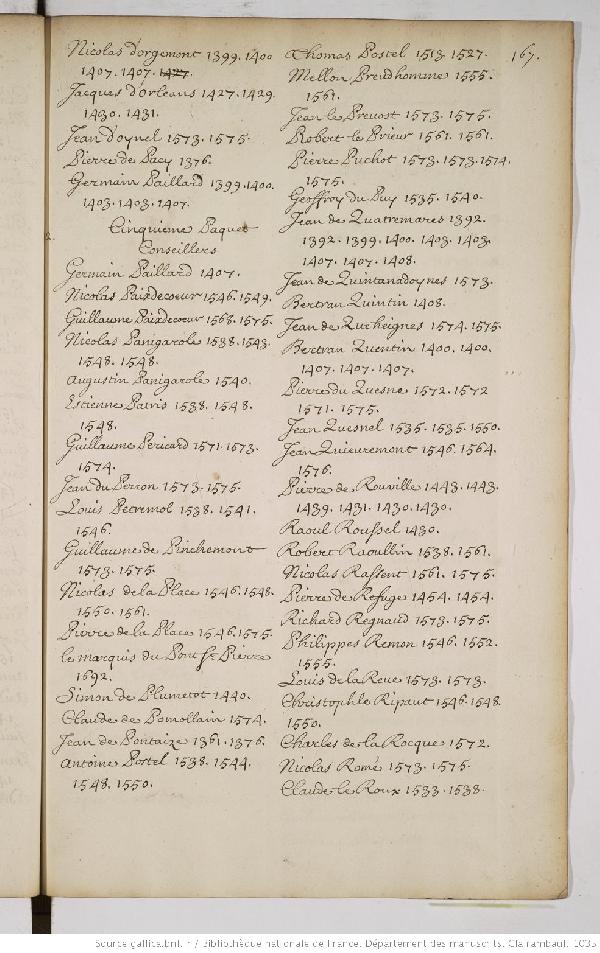 167.
Nicolas d'orgemont 1399. 1400
1407. 1407. 1427.
Jacques d'orleans 1427. 1429.
1430. 1431.
Jean d'oynel 1573. 1575.
Pierre de Pacy 1376.
Germain Paillard 1399. 1400.
1403. 1403. 1407.
Cinquieme Paquet
Conseillers
Germain Paillard 1407.
Nicolas Paixdecoeur 1546. 1549.
Guillaume Paixdecoeur 1568. 1575.
Nicolas Panigarole 1538. 1543.
1548. 1548.
Augustin Panigarole 1540.
Estienne Patris 1538. 1548.
1548.
Guillaume Pericard 1571. 1573.
1574.
Jean du Perron 1573. 1575.
Louis Petremol 1538. 1541.
1546.
Guillaume de Pinchemont
1573. 1575.
Nicolas de la Place 1546. 1548.
1550. 1561.
Pierre de la Place 1546. 1575.
le marquis du Pont St. Pierre
1692.
Simon de Plumetot 1440.
Claude de Pomollain 1574.
Jean de Pontaize 1361. 1376.
Antoine Postel 1538. 1544.
1548. 1550.
Thomas Postel 1513. 1527.
Mellon Preudhomme 1555.
1561.
Jean le Prevost 1573. 1575.
Robert le Prieur 1561. 1561.
Pierre Puchot 1573. 1573. 1574.
1575.
Geoffroy du Puy 1535. 1540.
Jean de Quatremares 1392.
1392. 1399. 1400. 1403. 1403.
1407. 1407. 1408.
Jean de Quintanadoynes 1573.
Bertran Quintin 1408.
Jean de 1574. 1575.
Bertran Quentin 1400. 1400.
1407. 1407. 1407.
Pierre du Quesne 1572. 1572
1571. 1575.
Jean Quesnel 1535. 1535. 1550.
Jean Quieuremont 1546. 1564.
1576.
Pierre de Rouville 1443. 1443.
1439. 1431. 1430. 1430.
Raoul Roussel 1430.
Robert Raoullin 1538. 1561.
Nicolas Rassent 1561. 1575.
Pierre de Refuge 1454. 1454.
Richard Regnaud 1573. 1575.
Philippes Remon 1546. 1552.
1555.
Louis de la Reue 1573. 1573.
Christophle 1546. 1548.
1550.
Charles de la Rocque 1572.
Nicolas Romé 1573. 1575.
Claude le Roux 1533. 1538.
Source gallica.bnf.fr / Bibliothèque nationale de France. Département des manuscrits. Clairambault 1035